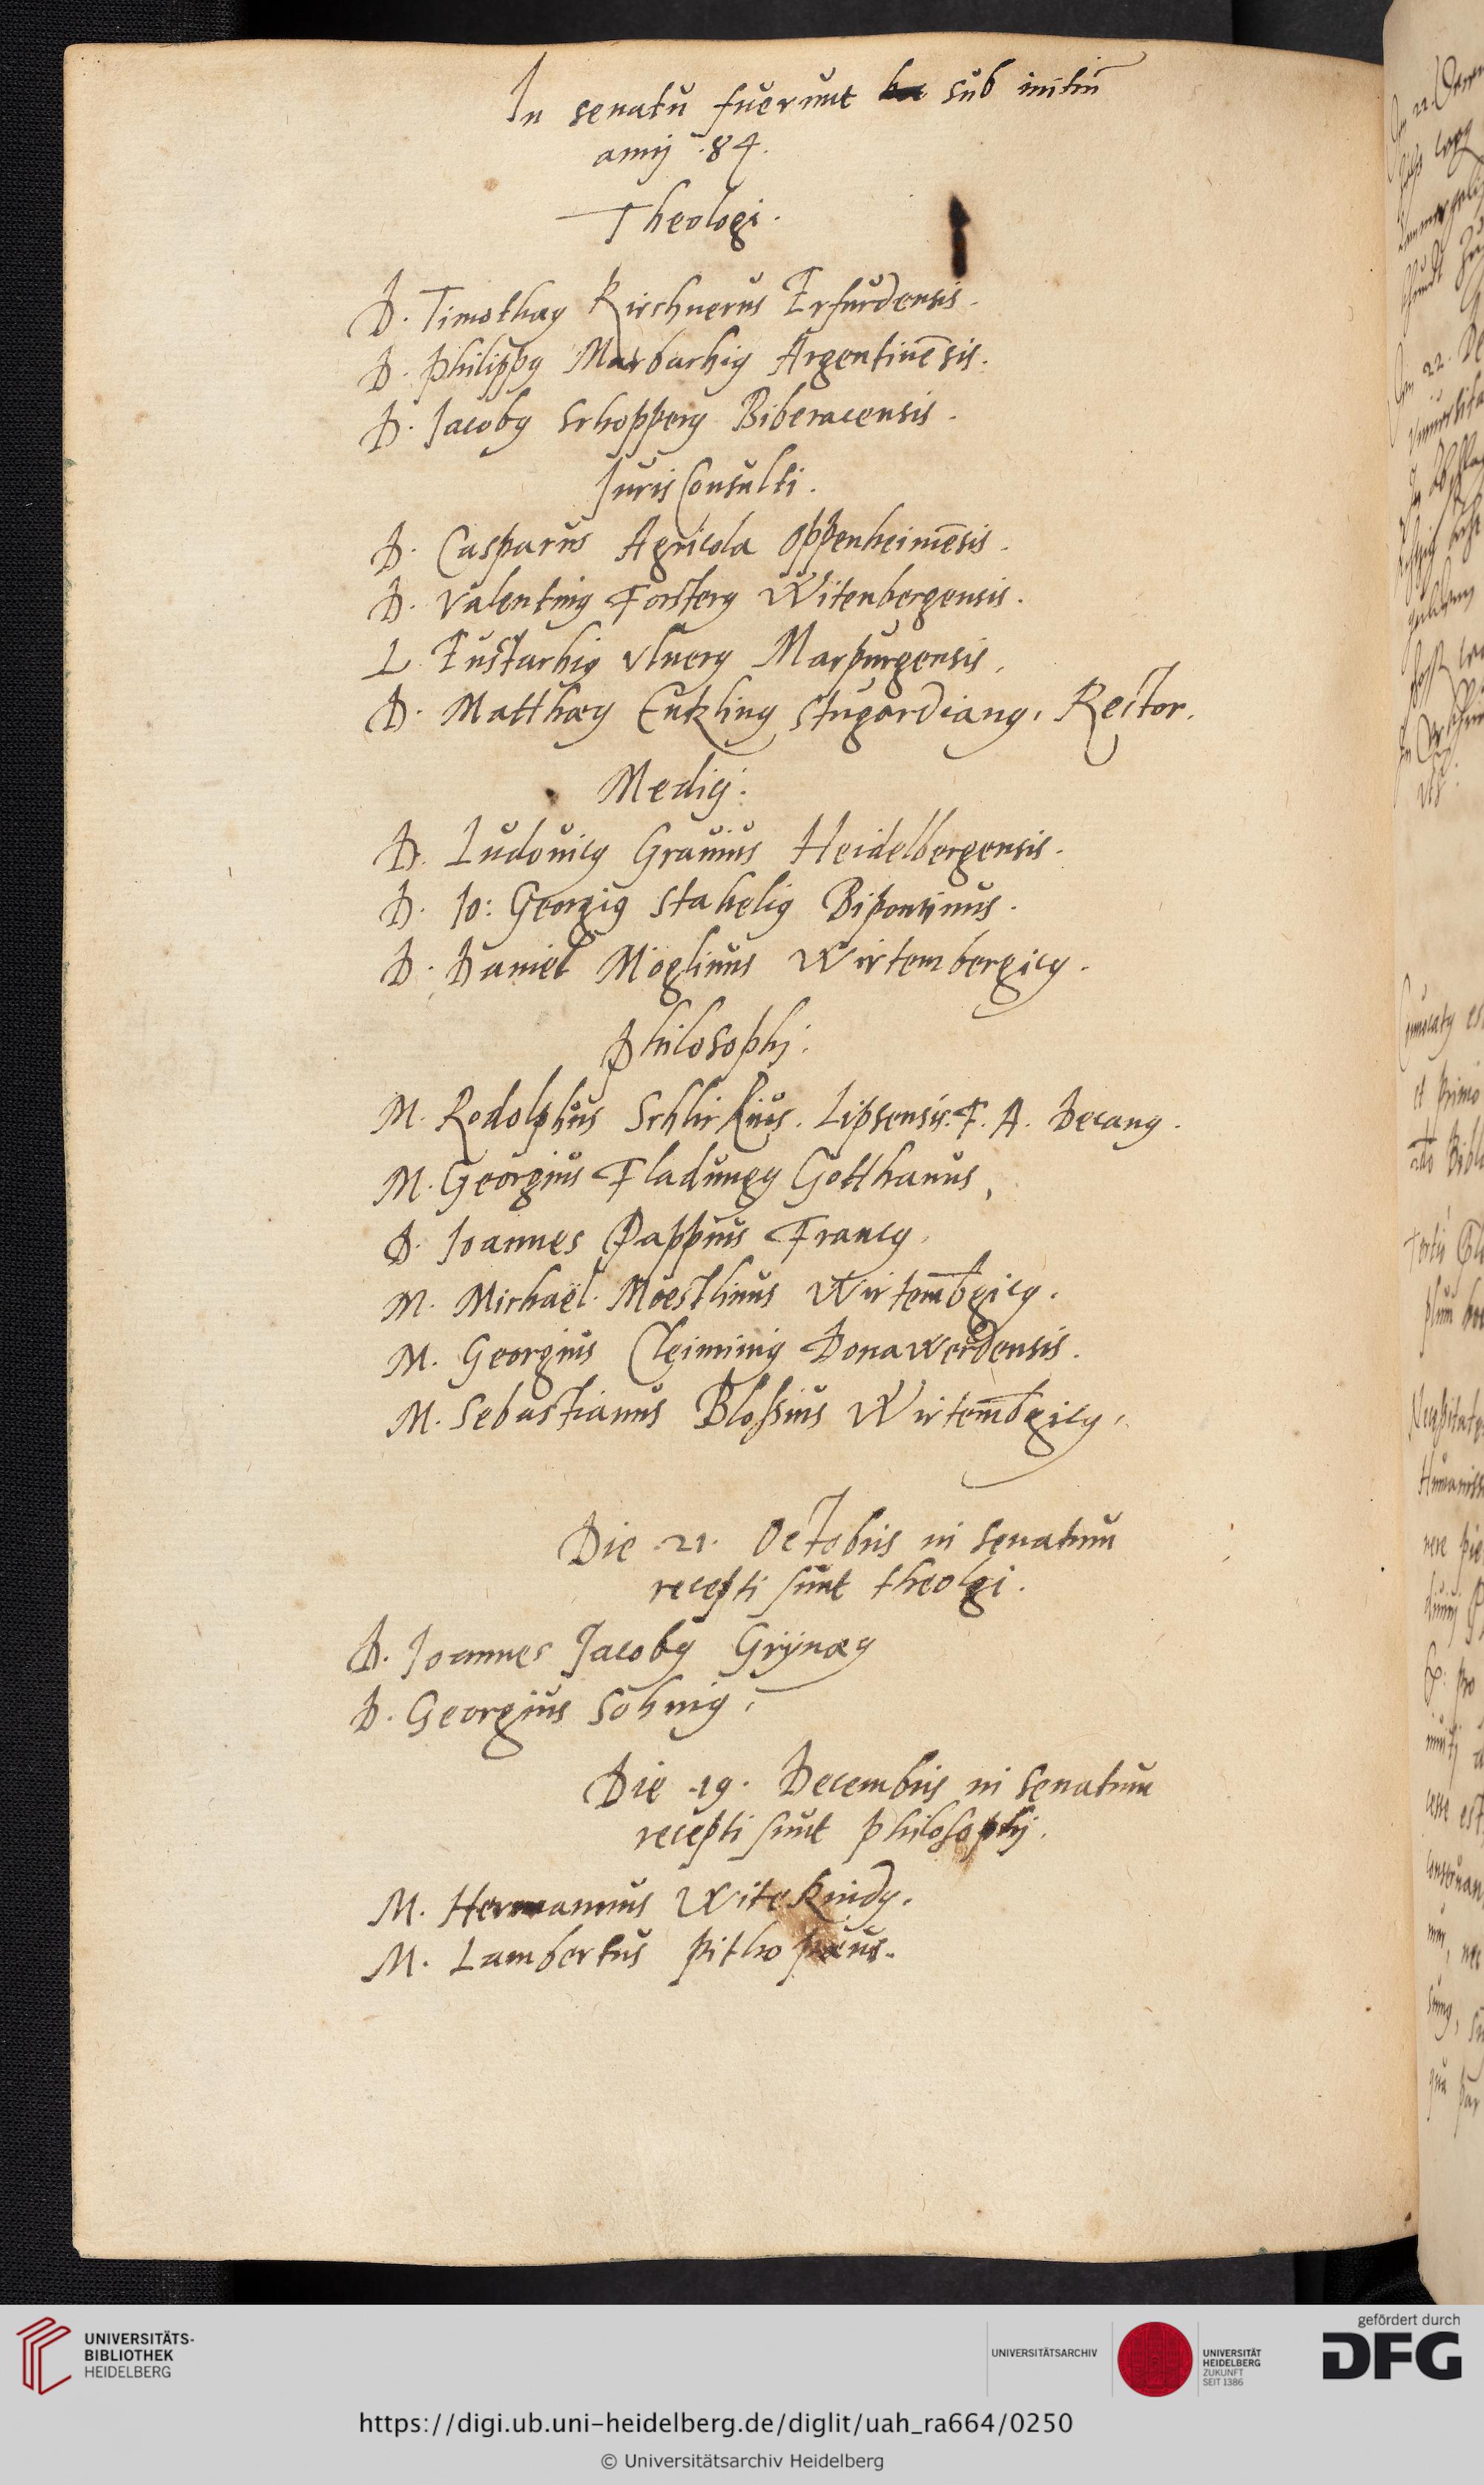 In senatu fuerunt sub initiū
annj .84.
Theologi.
D. Timothæꝰ Kirchnerus Erfurdensis.
D. Philippꝰ Marbachiꝰ Argentinēsis.
D. Jacobꝰ Schopperꝰ Biberacensis.
Juris Consulti.
D. Casparus Agricola Oppenheimēsis.
D. Valentinꝰ Forsterꝰ Witenbergensis.
L. Eustachiꝰ Vlnerꝰ Marpurgensis.
D. Matthæꝰ Entzlinꝰ Stugardianꝰ. Rector.
Medicj.
D. Ludouicꝰ Grauius Heidelbergensis.
D. Jo: Georgiꝰ Staheliꝰ Bipontinus.
D. Daniel Möglinus Wirtembergicꝰ.
Philosophj.
M. Rodolphus Schlickius. Lipsensis. F. A. Decanꝰ.
M. Georgius Fladungꝰ Gotthanus.
D. Joannes Pappius Francꝰ.
M. Michaël Moestlinus Wirtemb̄gicꝰ.
M. Georgius Cleiminiꝰ Donawerdensis.
M. Sebastianus Bloßius Wirtemb̄gicꝰ.
Die 21. Octobris in Senatum
recepti sunt theolgi.
D. Joannes Jacobꝰ Grÿnæꝰ
D. Georgius Sohniꝰ.
Die .19. Decembris in Senatum
recepti sunt philosophj.
M. Hermannus Witekindꝰ.
M. Lambertus pithopæus.
UNIVERSITÄTS-
BIBLIOTHEK
HEIDELBERG
UNIVERSITÄTSARCHIV
UNIVERSITÄT
HEIDELBERG
ZUKUNFT
SEIT 1386
gefördert durch
DFG
https://digi.ub.uni-heidelberg.de/diglit/uah_ra664/0250
© Universitätsarchiv Heidelberg